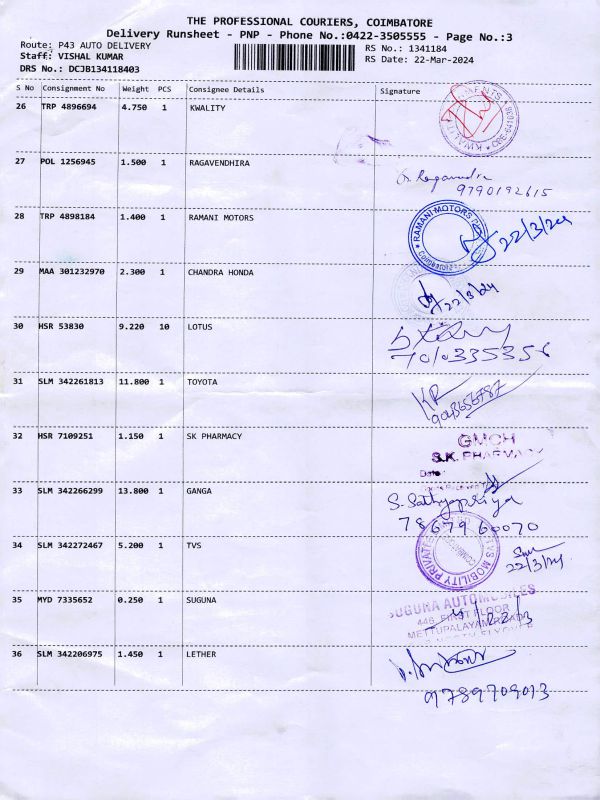 THE PROFESSIONAL COURIERS, COIMBATORE
Delivery Runsheet - PNP - Phone No.:0422-3505555 - Page No.:3
Route: P43 AUTO DELIVERY RS No.: 1341184
Staff: VISHAL KUMAR RS Date: 22-Mar-2024
DRS No.: DCJB134118403
S No Consignment No Weight PCS Consignee Details Signature
26 TRP 4896694 4.750 1 KWALITY
27 POL 1256945 1.500 1 RAGAVENDHIRA
9790192615
28 TRP 4898184 1.400 1 RAMANI MOTORS
RAMANI MOTORS
22/3/24
29 MAA 301232970 2.300 1 CHANDRA HONDA
22/3/24
30 HSR 53830 9.220 10 LOTUS
7010335356
31 SLM 342261813 11.800 1 TOYOTA
KR
32 HSR 7109251 1.150 1 SK PHARMACY
GMCH
S.K. PHARMACY
Date:
33 SLM 342266299 13.800 1 GANGA
S. Sathyapriya
7867960070
34 SLM 342272467 5.200 1 TVS
TVS MOBILITY PRIVATE
22/3/24
35 MYD 7335652 0.250 1 SUGUNA
SUGUNA AUTOMOBILES
446, FIRST FLOOR
METTUPALAYAM ROAD
36 SLM 342206975 1.450 1 LETHER
9789709013